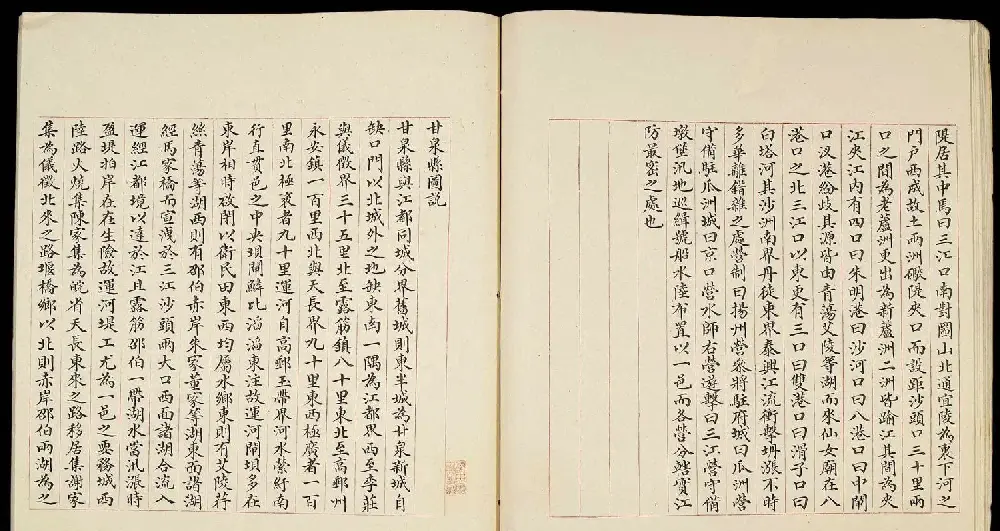 隄居其中焉曰三江口南對圌山北通宜陵為裏下河之
門戶西成故土兩洲礮隄夾口而設距沙頭口三十里兩
口之間為老蘆洲更出為新蘆洲二洲皆踰江其間為夾
江夾江內有四口曰朱明港曰沙河口曰八港口曰中閘
口汊港紛歧其源皆由青蕩艾陵等湖而來仙女廟在八
港口之北三江口以東更有三口曰雙港口曰滑子口曰
白塔河其沙洲南界丹徒東界泰興江流衝擊坍漲不時
多華離錯雜之處營制曰揚州營叅將駐府城曰瓜洲營
守備駐瓜洲城曰京口營水師右營遊擊曰三江營守備
墩堡汛地巡緝號船水陸布置以一邑而各營分轄實江
防最密之處也
甘泉縣圖說
甘泉縣與江都同城分界舊城則東半城為甘泉新城自
缺口門以北城外之地缺東南一隅為江都界西至李莊
與儀徵界三十五里北至露筋鎮八十里東北至高郵州
永安鎮一百里西北與天長界九十里東西極廣者一百
里南北極袤者九十里運河自高郵玉帶界河水縈紆南
行直貫邑之中央壩閘鱗比滔滔東注故運河閘壩多在
東岸相時啟閉以衛民田東西均屬水鄉東則有艾陵荇
絲青蕩等湖西則有邵伯赤岸朱家董家等湖東西諸湖
經馬家橋而宣洩於三江沙頭兩大口西面諸湖合流入
運經江都境以達於江且露筋邵伯一帶湖水當汛漲時
盈堤拍岸在在生險故運河堤工尤為一邑之要務城西
陸路火燒集陳家集為皖省天長東來之路移居集謝家
集為儀徵北來之路堰橋鄉以北則赤岸邵伯兩湖為之